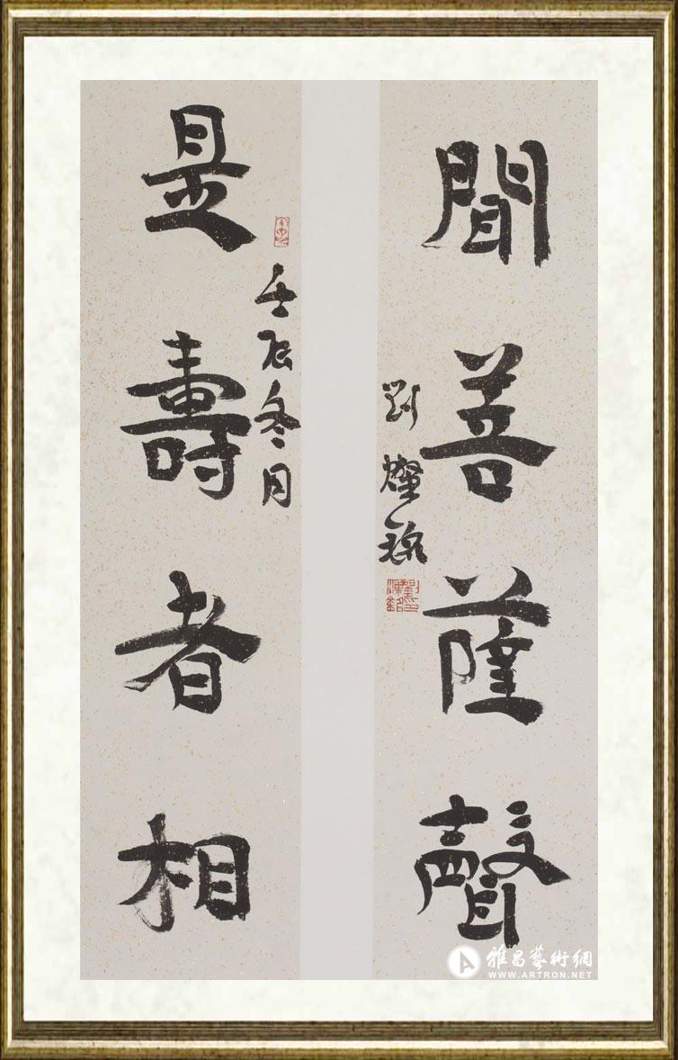 聞菩薩聲
劉燦銘
是壽者相
壬辰冬月
雅昌藝術網
WWW.ARTRON.NET